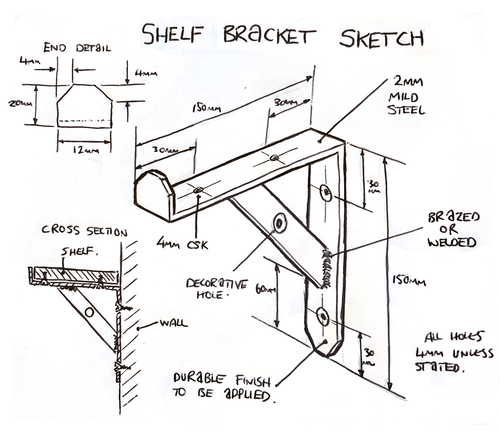 SHELF BRACKET SKETCH
END DETAIL
4mm
4mm
20mm
12mm
150mm
30mm
30mm
2mm
MILD
STEEL
4mm CSK
30
mm
BRAZED
OR
WELDED
CROSS SECTION
SHELF.
DECORATIVE
HOLE.
60mm
150mm
WALL
ALL HOLES
4mm UNLESS
STATED.
30
mm
DURABLE FINISH
TO BE APPLIED.